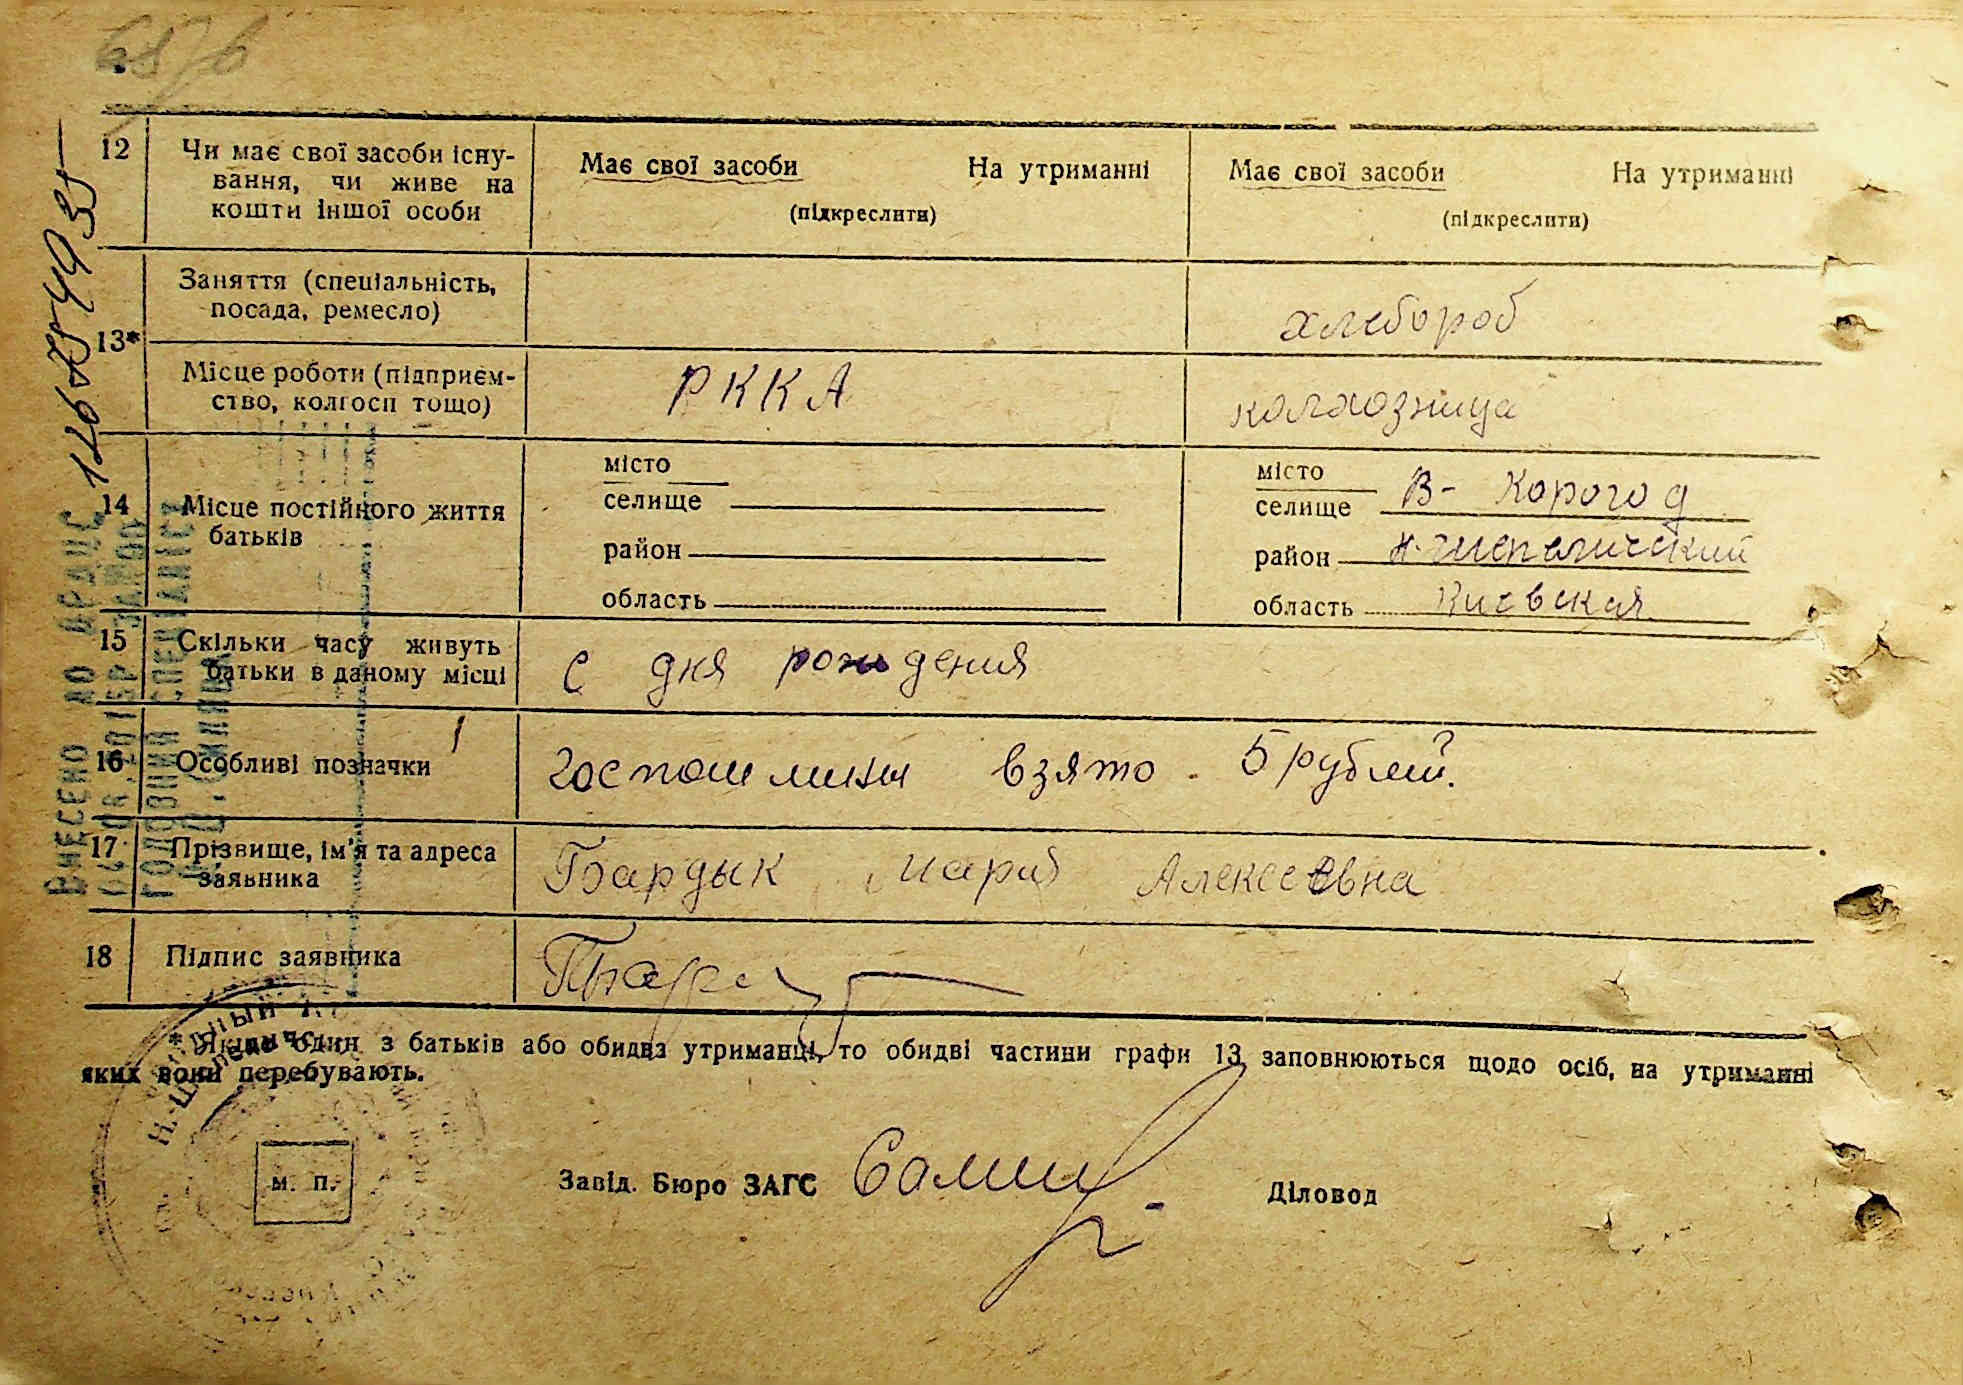 12
Чи має свої засоби існу-
вання, чи живе на
кошти іншої особи
Має свої засоби На утриманні
(підкреслити)
Має свої засоби На утриманні
(підкреслити)
13*
Заняття (спеціальність,
посада, ремесло)
хлебороб
Місце роботи (підприєм-
ство, колгосп тощо)
РККА
колхозница
14
Місце постійного життя
батьків
місто
селище
район
область
місто
селище В- Корогод
район
область Киевская
15
Скільки часу живуть
батьки в даному місці
С дня рождения
16
Особливі позначки
госпошлины взято 5 рублей.
17
Прізвище, ім'я та адреса
заявника
Бардык Мария Алексеевна
18
Підпис заявника
* Якщо один з батьків або обидва утриманці, то обидві частини графи 13 заповнюються щодо осіб, на утриманні
яких вони перебувають.
м. п.
Завід. Бюро ЗАГС
Діловод
ВНЕСЕНО ДО ДРАЦС
ГОЛОВНИЙ СПЕЦІАЛІСТ